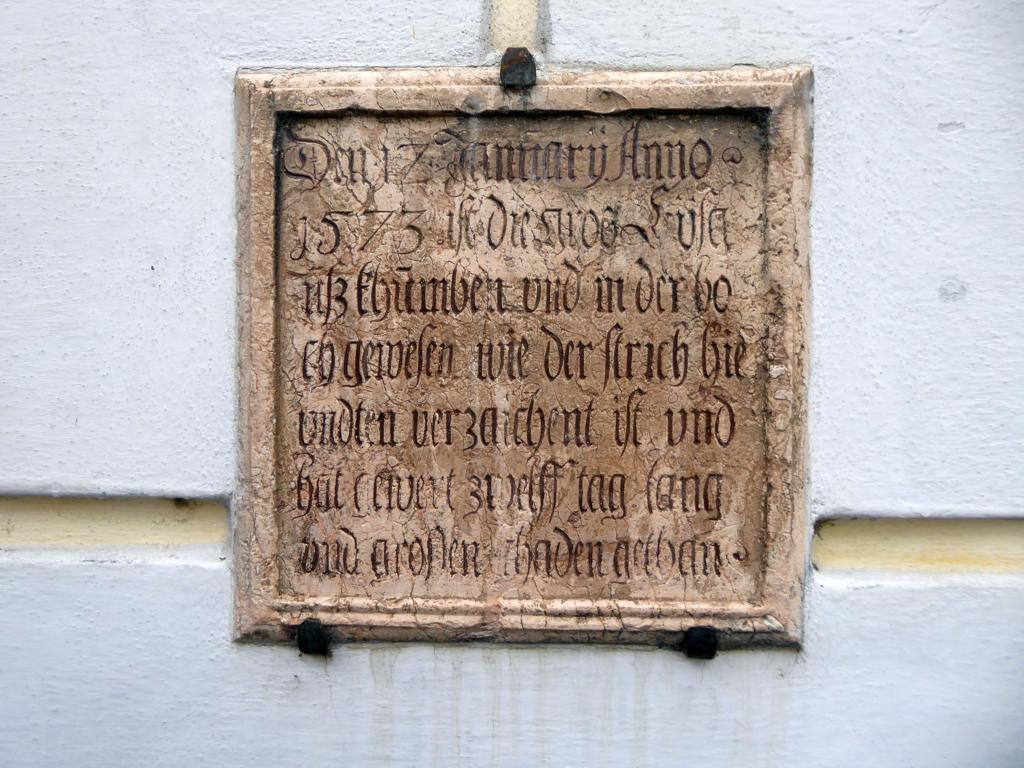 Den 12 Januarÿ Anno
1573 ist die gros Eÿss
güß khumben vnd in der hö
ch gewesen wie der strich hie
vndten verzaichent ist vnd
hat gewert zwelff tag lang
vnd grossen schaden gethan